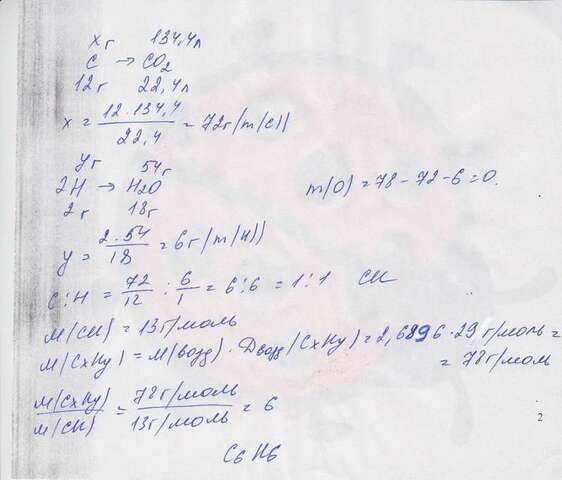 x г 134,4 л
C → CO2
12 г 22,4 л
x = 12·134,4 / 22,4 = 72 г (m(C))
y г 54 г
2H → H2O
2 г 18 г
m(O) = 78 - 72 - 6 = 0.
y = 2·54 / 18 = 6 г (m(H))
C:H = 72/12 : 6/1 = 6:6 = 1:1 CH
M(CH) = 13 г/моль
M(CxHy) = M(возд) · Dвозд(CxHy) = 2,6896 · 29 г/моль =
= 78 г/моль
M(CxHy) / M(CH) = 78 г/моль / 13 г/моль = 6
C6H6
2